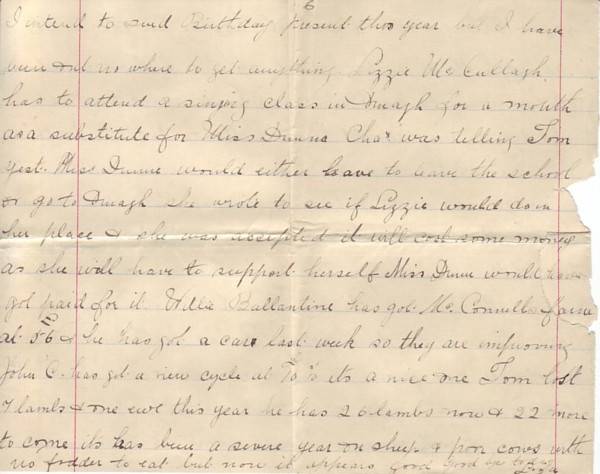 6
I intend to send Birthday present this year but I have
been out no where to get anything. Lizzie McCullagh
has to attend a singing class in Omagh for a month
as a substitute for Miss Dunne Chas was telling Tom
yest. Miss Dunne would either have to leave the school
& go to Omagh she wrote to see if Lizzie would do in
her place & she was accepted it will cost some money
as she will have to support herself Miss Dunne would have
got paid for it Willie Ballantine has got McConnells farm
at £56 & he has got a car last week so they are improving
John C. has got a new cycle at its a nice one Tom lost
7 lambs & one ewe this year he has 26 lambs now & 22 more
to come its has been a severe year on sheep & poor cows with
no fodder to eat but now it appears good Good bye to